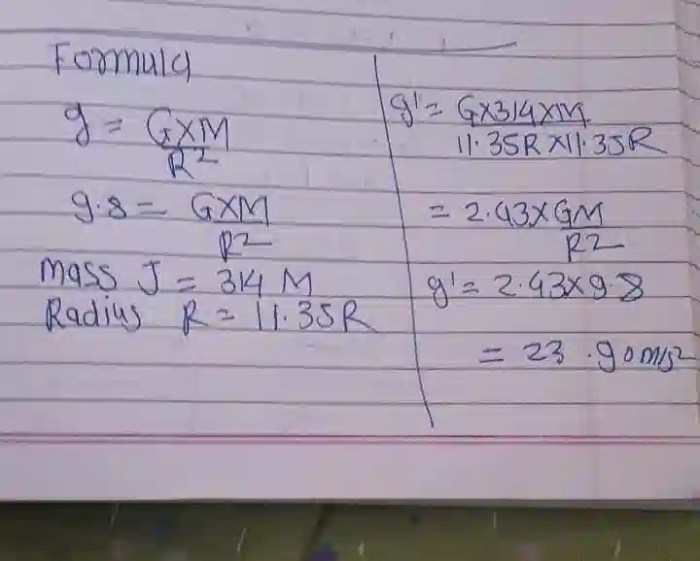 Formula
g = GXM
R2
9.8 = GXM
R2
Mass J = 314 M
Radius R = 11.35R
g' = GX314XM
11.35RX11.35R
= 2.43XGM
R2
g' = 2.43X9.8
= 23.90m/s2